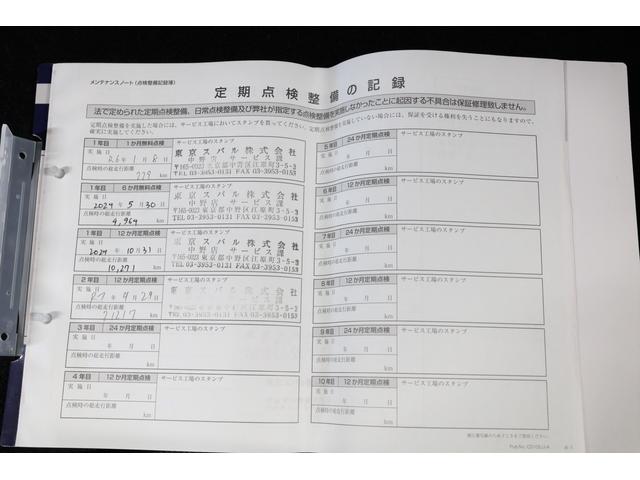 メンテナンスノート（点検整備記録簿）
定期点検整備の記録
法で定められた定期点検整備、日常点検整備及び弊社が指定する点検整備を実施しなかったことに起因する不具合は保証修理致しません。
定期点検整備を実施した場合には、サービス工場においてスタンプを貰ってください。定期点検整備を実施していない場合には、保証を受ける権利を失うことにもなりますので、
確実に実施してください。
1年目 1か月無料点検 サービス工場のスタンプ
実施日
R6年1月8日
点検時の総走行距離
229 km
東京スバル株式会社
中野店 サービス課
〒165-0023 東京都中野区江原町3-5-3
TEL 03-3953-0131 FAX 03-3953-0153
1年目 6か月無料点検 サービス工場のスタンプ
実施日
2024年5月30日
点検時の総走行距離
4,964 km
東京スバル株式会社
中野店 サービス課
〒165-0023 東京都中野区江原町3-5-3
TEL 03-3953-0131 FAX 03-3953-0153
1年目 12か月定期点検 サービス工場のスタンプ
実施日
2024年10月31日
点検時の総走行距離
10,271 km
東京スバル株式会社
中野店 サービス課
〒165-0023 東京都中野区江原町3-5-3
TEL 03-3953-0131 FAX 03-3953-0153
2年目 12か月定期点検 サービス工場のスタンプ
実施日
点検時の総走行距離
km
東京スバル株式会社
中野店 サービス課
〒165-0023 東京都中野区江原町3-5-3
TEL 03-3953-0131 FAX 03-3953-0153
3年目 24か月定期点検 サービス工場のスタンプ
実施日
年 月 日
点検時の総走行距離
km
4年目 12か月定期点検 サービス工場のスタンプ
実施日
年 月 日
点検時の総走行距離
km
5年目 24か月定期点検 サービス工場のスタンプ
実施日
年 月 日
点検時の総走行距離
km
6年目 12か月定期点検 サービス工場のスタンプ
実施日
年 月 日
点検時の総走行距離
km
7年目 24か月定期点検 サービス工場のスタンプ
実施日
年 月 日
点検時の総走行距離
km
8年目 12か月定期点検 サービス工場のスタンプ
実施日
年 月 日
点検時の総走行距離
km
9年目 24か月定期点検 サービス工場のスタンプ
実施日
年 月 日
点検時の総走行距離
km
10年目 12か月定期点検 サービス工場のスタンプ
実施日
年 月 日
点検時の総走行距離
km